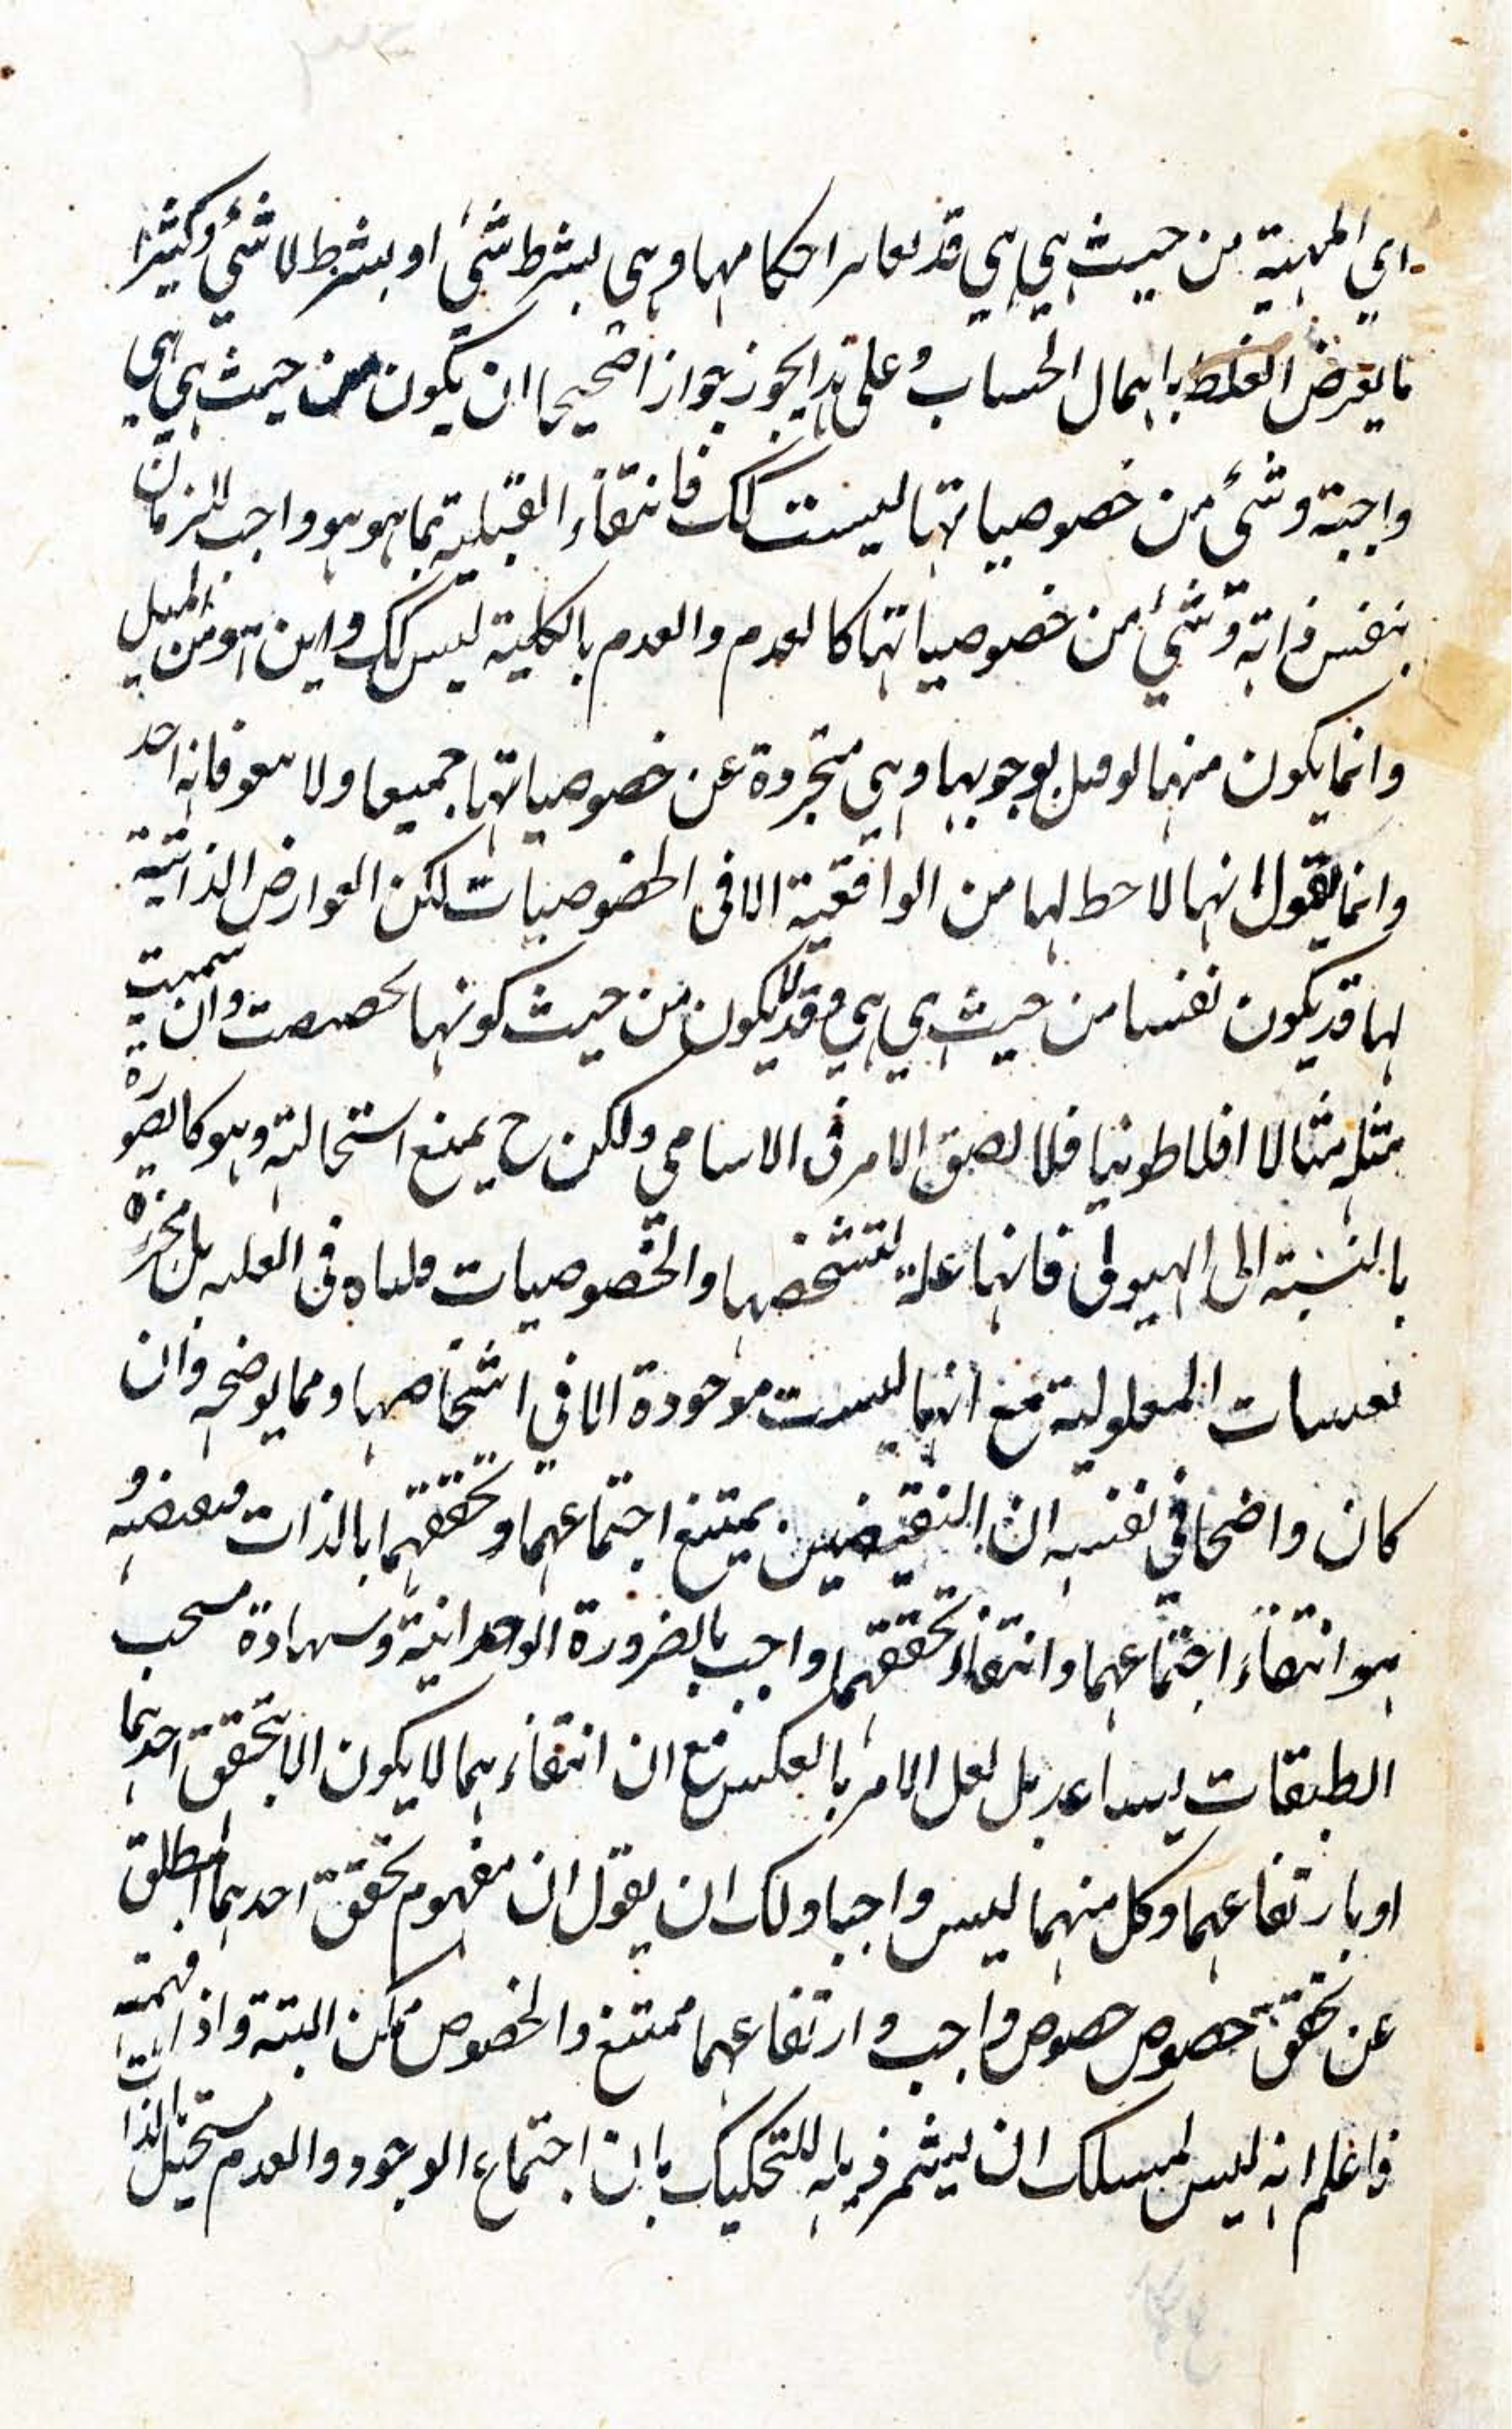 اي المهية من حيث هي هي قد تغاير احكامها وهي بشرط شئ او بشرط لا شئ وكثيرا
ما يعرض الغلط باهمال الحساب وعلى هذا يجوز جوازا صحيحا ان يكون من حيث هي هي
واجبة وشئ من خصوصياتها ليست كك فانتفاء القبلية بما هو هو واجب للزمان
بنفس ذاته وشئ من خصوصياتها كالعدم والعدم بالكلية ليس كك واين هو من الميل
وانما يكون منهما لو قيل بوجوبها وهي متجردة عن خصوصياتها جميعا ولا نتفوه فانه احد
وانما نقول انها لا حظ لها من الواقعية الا في الخصوصيات لكن العوارض الذاتية
لها قد يكون نفسا من حيث هي هي وقد لا يكون من حيث كونها تحصصت وان سميت
مثله مثالا افلاطونيا فلا نضيق الامر في الاسامي ولكن ح يمنع استحالته وهو كالصورة
بالنسبة الى الهيولى فانها علة لتشخصها والخصوصيات ملغاة في العلية بل مجردة
المعلولية مع انها ليست موجودة الا في اشخاصها ومما يوضحه وان
كان واضحا في نفسه ان النقيضين يمتنع اجتماعهما وتحققهما بالذات فنقيضه و
هو انتفاء اجتماعهما وانتفاء تحققهما واجب بالضرورة الوجدانية وشهادة مبحث
الطبقات يساعد بل لعل الامر بالعكس مع ان انتفاءهما لا يكون الا بتحقق احدهما
او بارتفاعهما وكل منهما ليس واجبا ولك ان يقول ان مفهوم تحقق احدهما المطلق
عن تحقق خصوص خصوص واجب وارتفاعهما ممتنع والخصوص ممكن البتة واذا فهمت
فاعلم انه ليس لمسلك ان يشمر ذيله للتحكيك بان اجتماع الوجود والعدم مستحيل بالذات